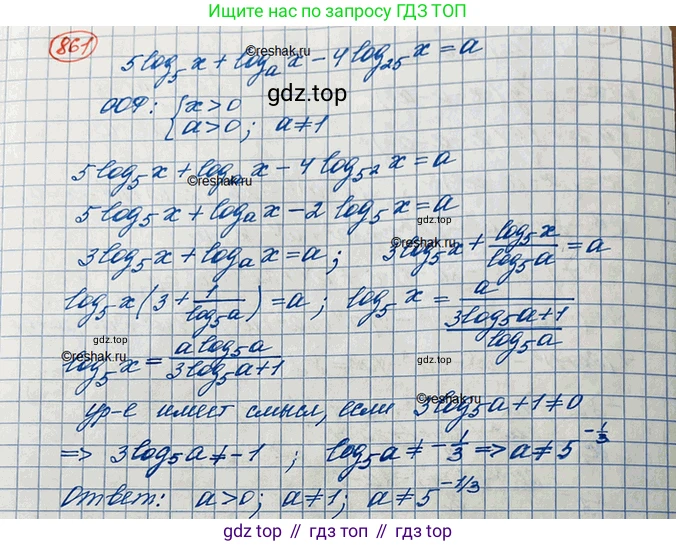 Ищите решения по запросу ГДЗ ТОП
861
5log₅x + logₐx − 4log₂₅x = a
©reshak.ru
gdz.top
ООФ: { x>0
a>0; a≠1
5log₅x + logₐx − 4log₅²x = a
©reshak.ru
5log₅x + logₐx − 2log₅x = a
gdz.top
3log₅x + logₐx = a; 3log₅x + log₅x/log₅a = a
©reshak.ru
gdz.top
log₅x(3 + 1/log₅a) = a; log₅x = a/((3log₅a+1)/log₅a)
gdz.top
©reshak.ru
log₅x = a log₅a/(3log₅a+1)
gdz.top
©reshak.ru
ур-е имеет смысл, если 3log₅a+1≠0
gdz.top
=> 3log₅a≠−1; log₅a≠−1/3 => a≠5^(−1/3)
Ответ: a>0; a≠1; a≠5^(−1/3)
gdz.top
gdz top // гдз топ // gdz.top